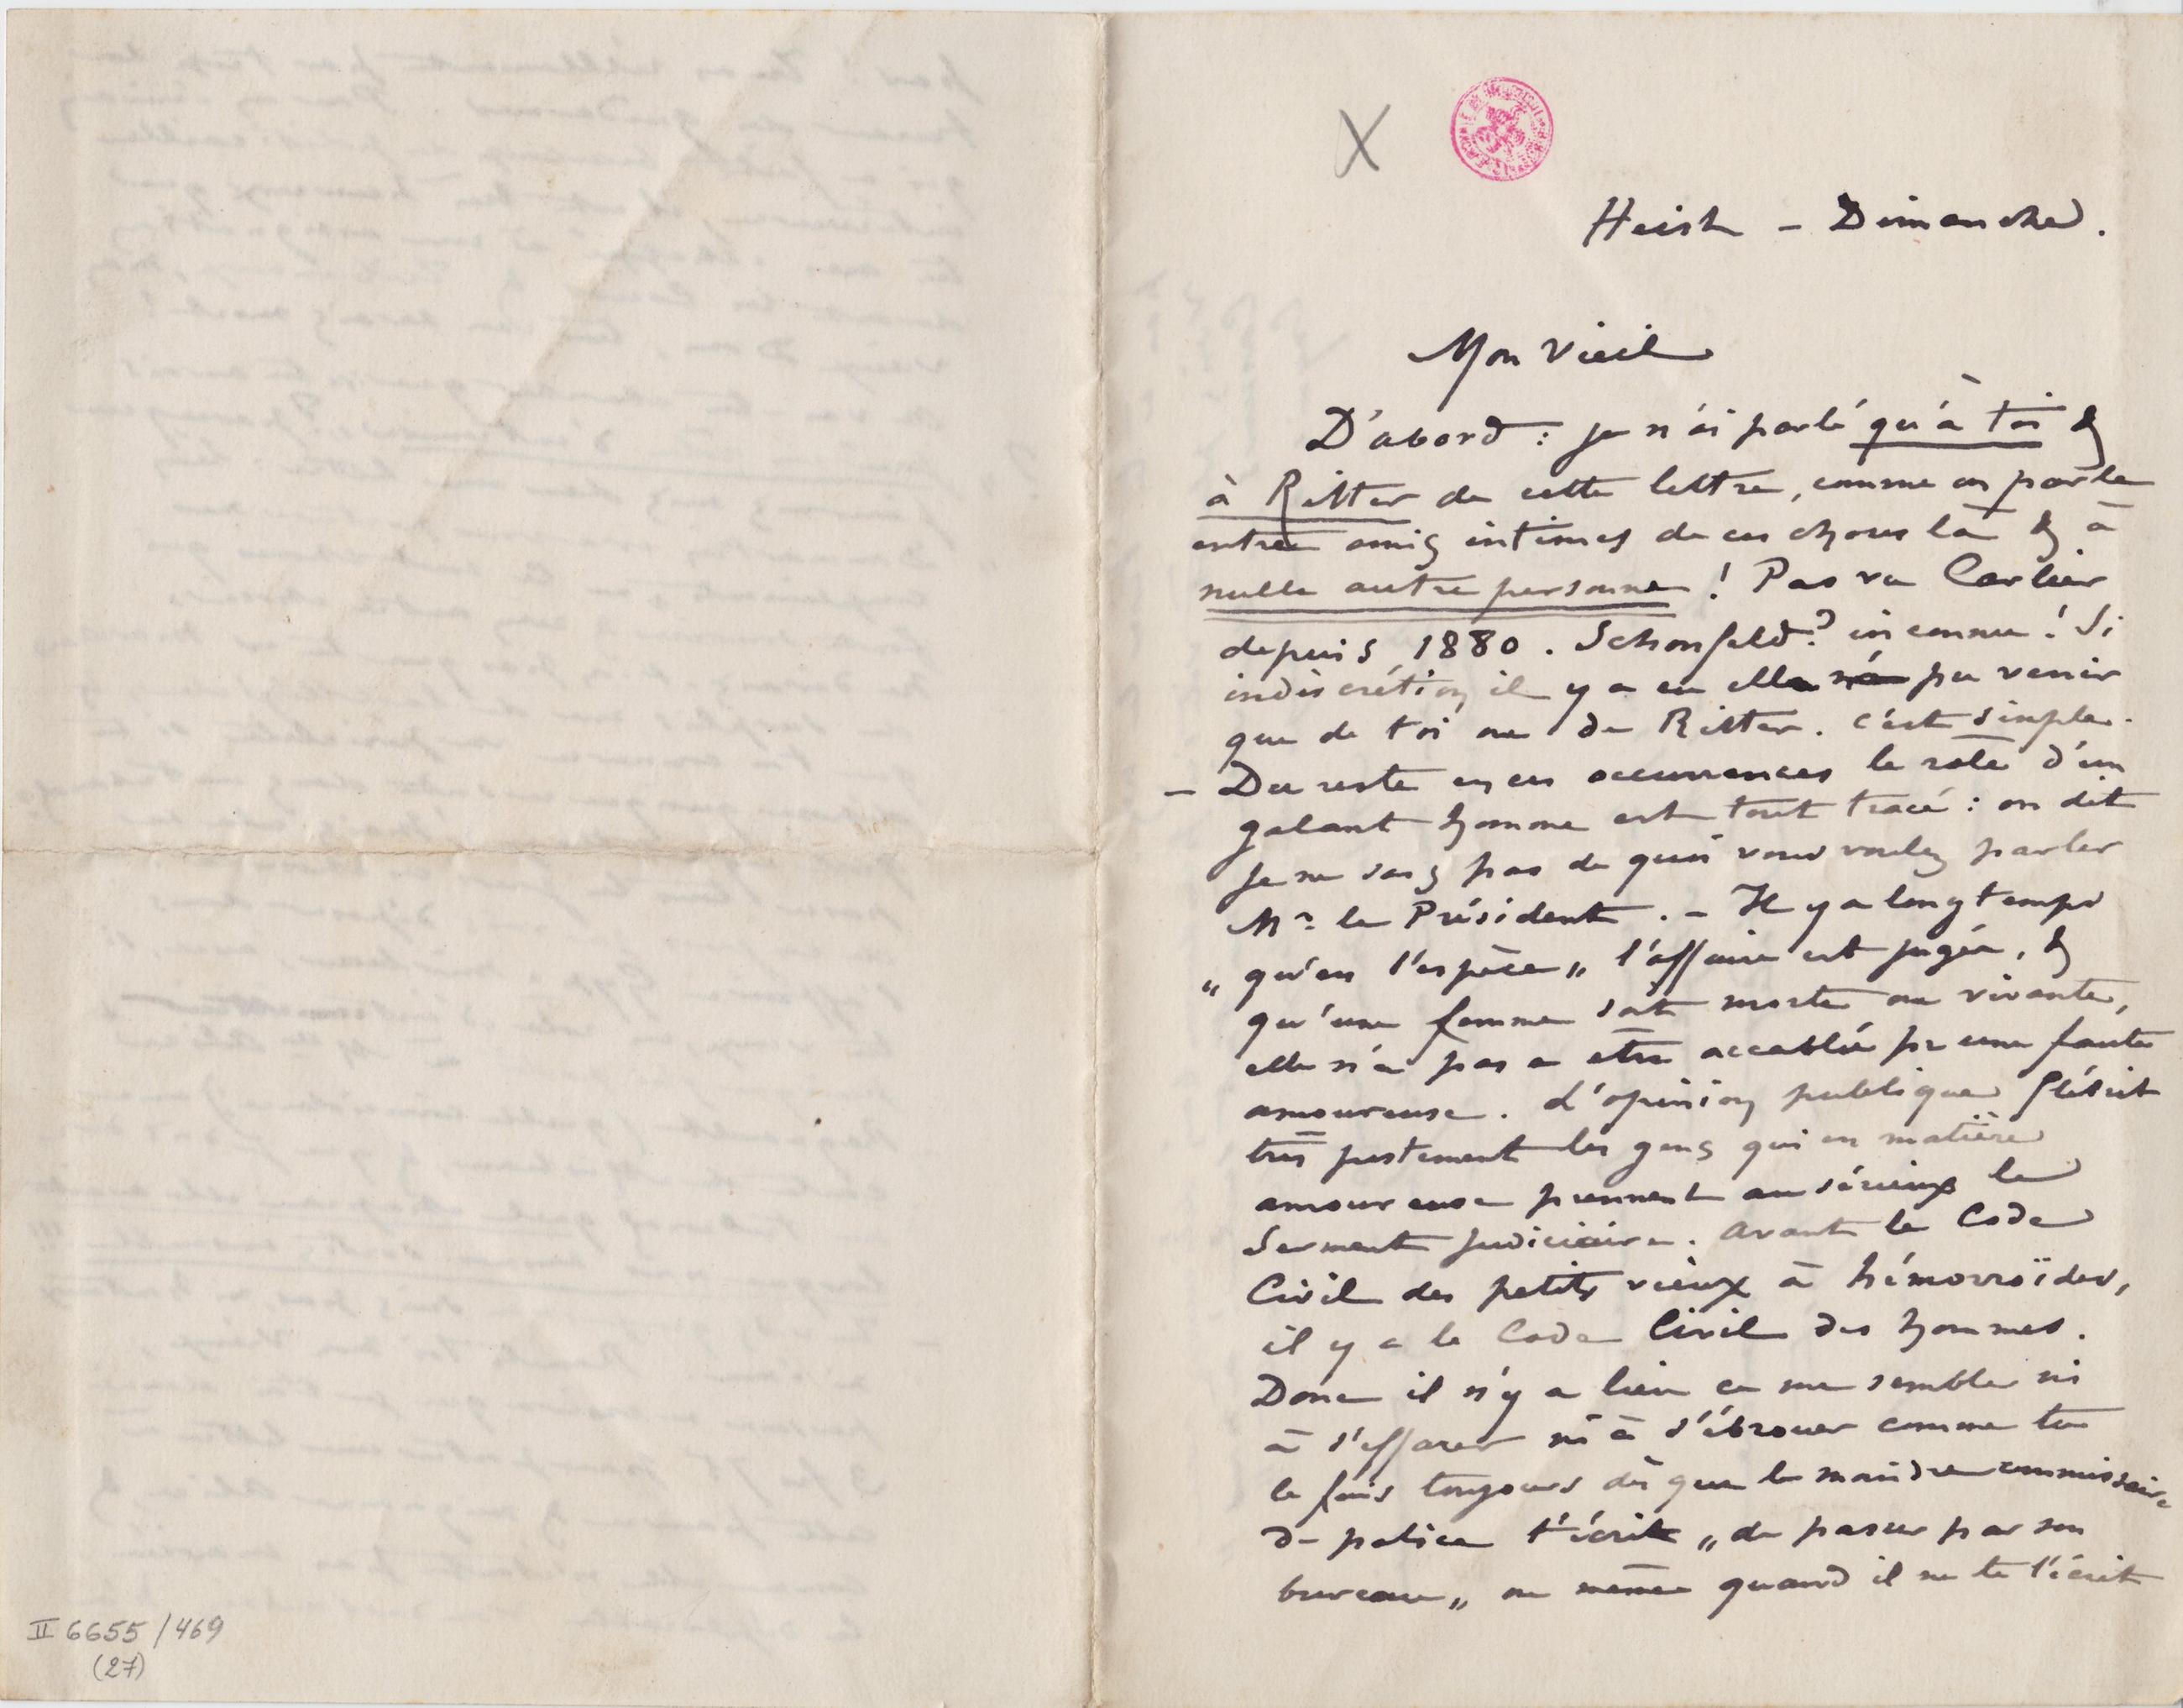 X
Heist – Dimanche.
Mon Vieil
D'abord : je n'ai parlé qu'à toi &
à Ritter de cette lettre, comme on parle
entre amis intimes de ces choses là & à
nulle autre personne ! Pas vu Carlier
depuis 1880. Schonfeld? inconnu ! Si
indiscrétion il y a eu elle n'a pu venir
que de toi ou de Ritter. c'est simple.
– Du reste en ces occurrences le role d'un
galant homme est tout tracé : on dit
je ne sais pas de quoi vous voulez parler
Mr le Président. – Il y a longtemps
„ qu'en l'espèce „ l'affaire est jugée, &
qu'une femme soit morte ou vivante,
elle n'a pas a etre accablée pr une faute
amoureuse. L'opinion publique flétrit
très justement les gens qui en matière
amoureuse prennent au sérieux le
Serment judiciaire. Avant le Code
Civil des petits vieux à hémorroïdes,
il y a le Code Civil des hommes.
Donc il n'y a lieu ce me semble ni
à s'effarer ni à s'ébrouer comme tu
le fais toujours dès que le moindre commissaire
de police t'écrit „ de passer par son
bureau „ ou même quand il ne te l'écrit
II 6655/469
(27)